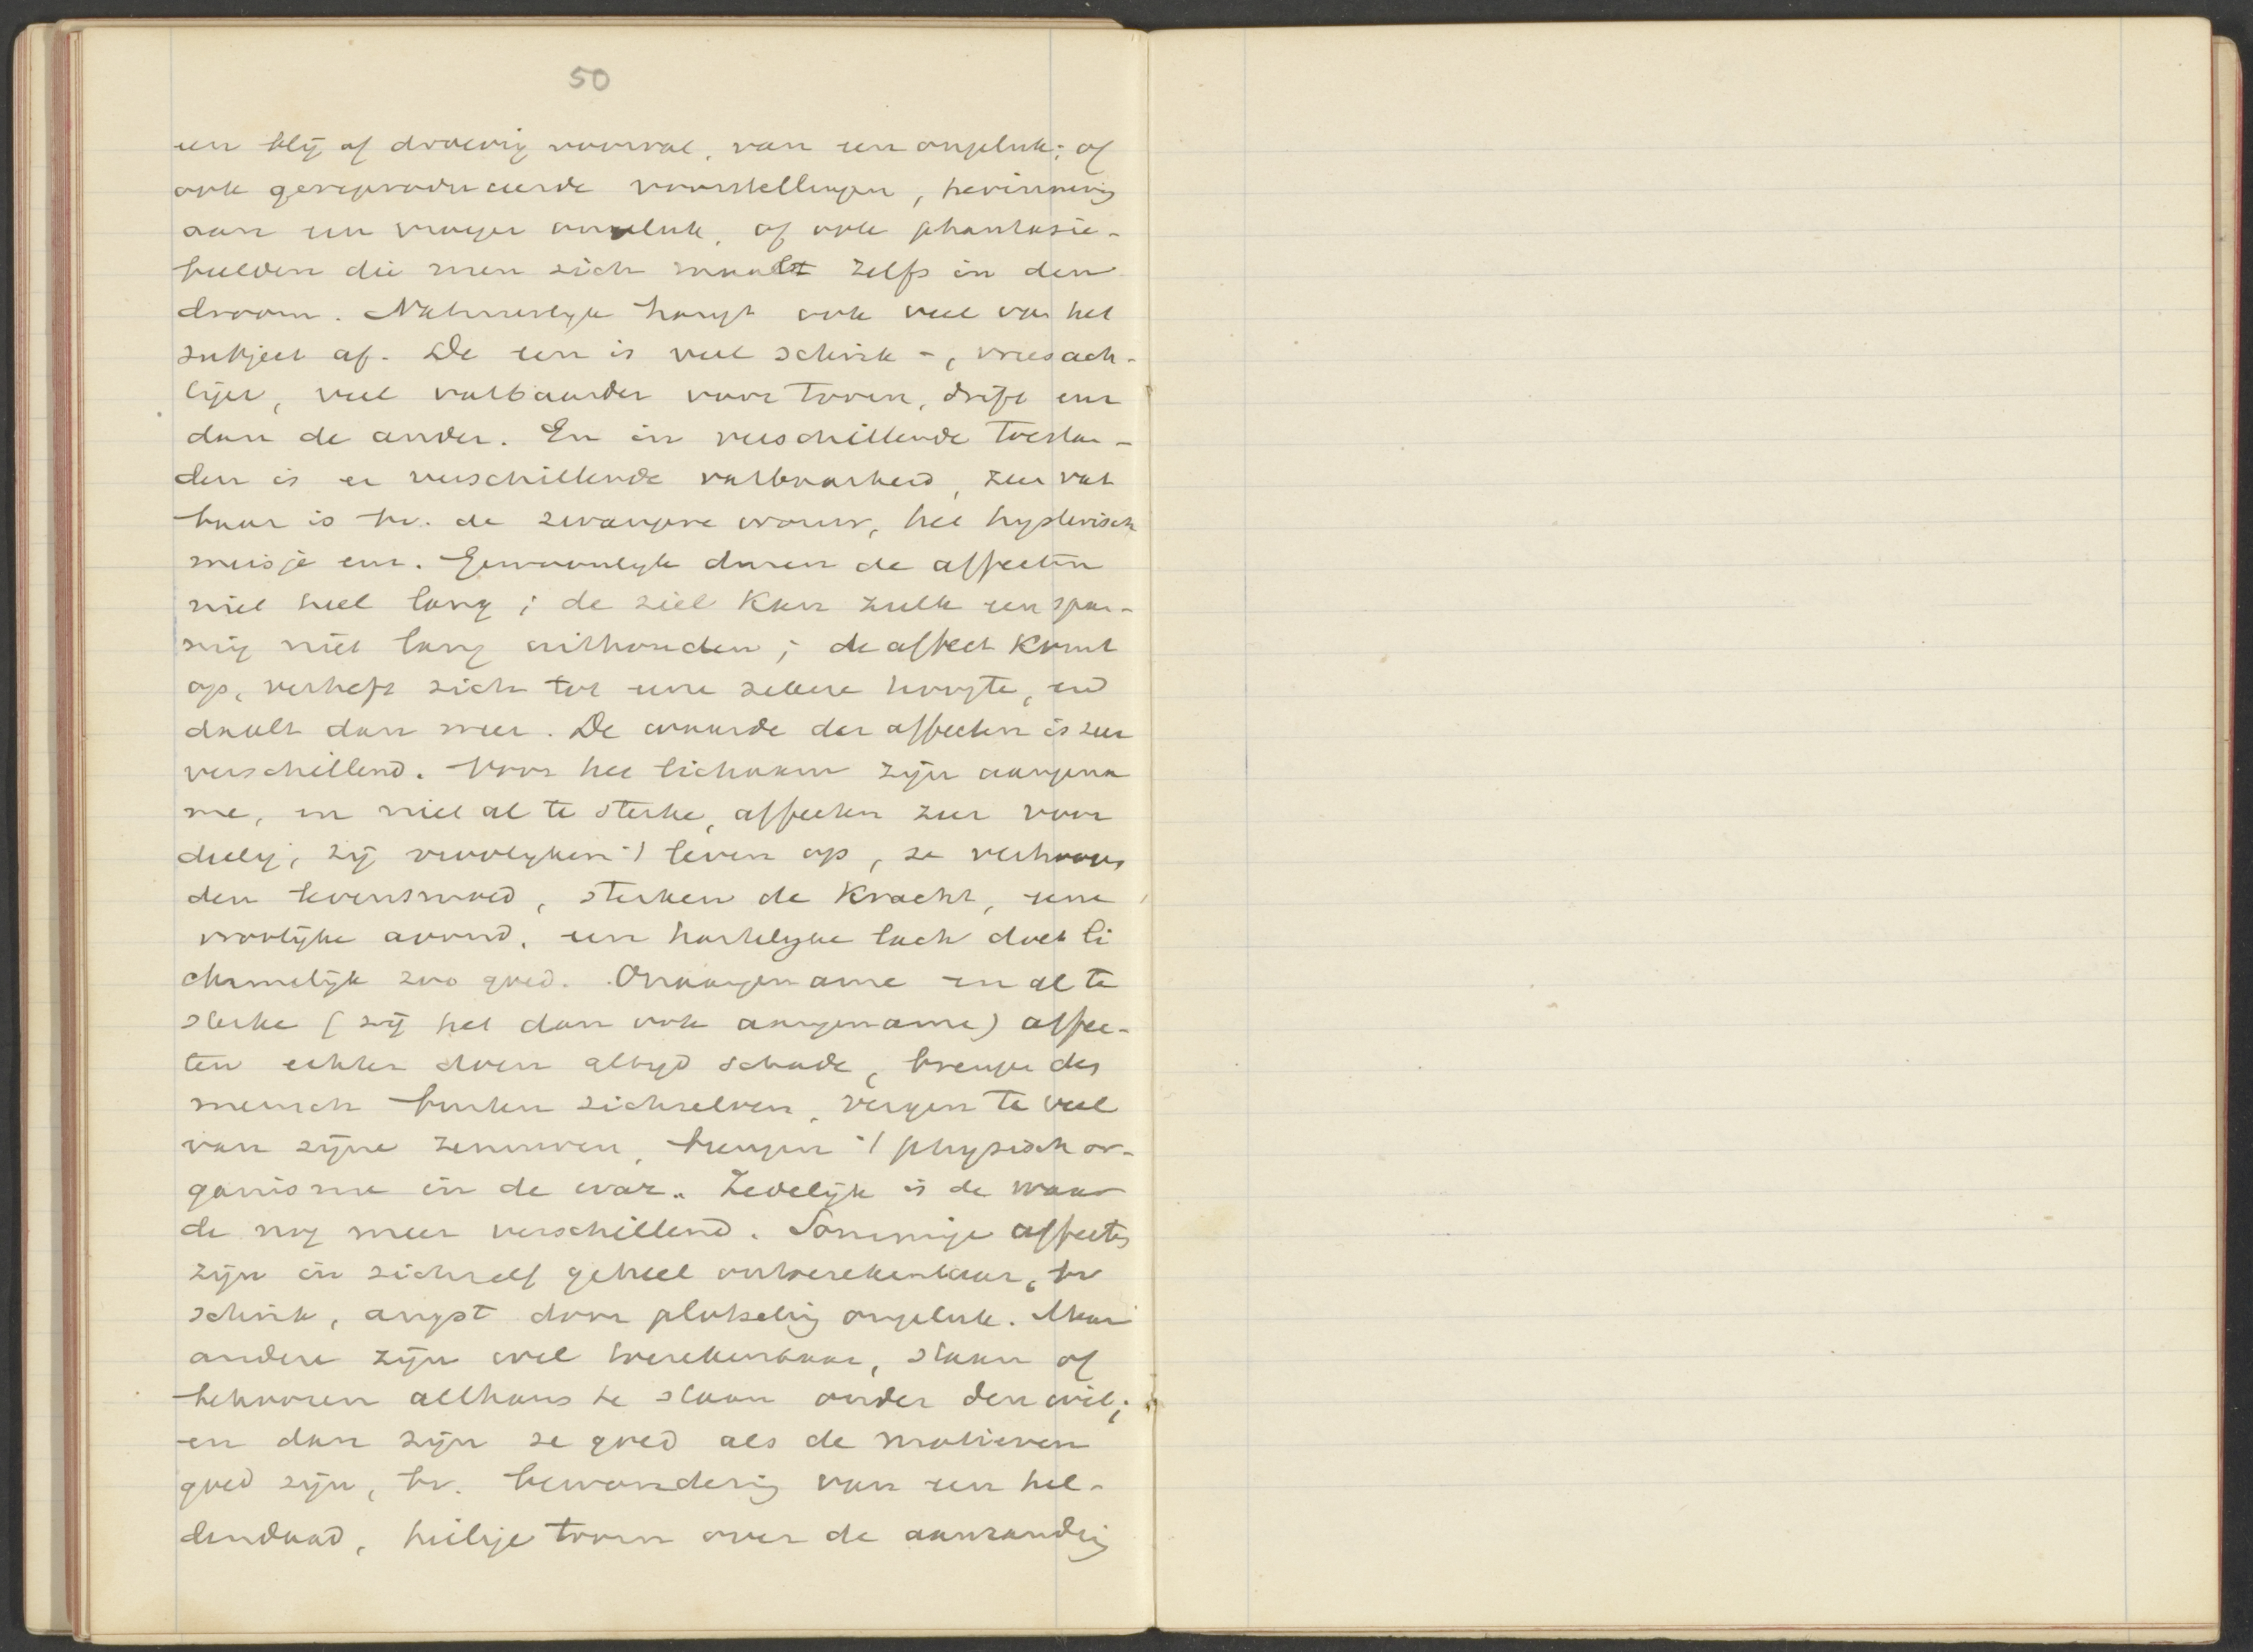 50
een blij of droevig voorval, van een ongeluk; of
ook gereproduceerde voorstellingen, herinnering
aan een vroeger ongeluk, of ook phantasie-
beelden die men zich maakt zelfs in den
droom. Natuurlijk hangt ook veel van het
subject af. De een is veel schrik-, vreesach-
tiger, veel vatbaarder voor toorn, drift enz
dan de ander. En in verschillende toestan-
den is er verschillende vatbaarheid, zeer vat
baar is bv. de zwangere vrouw, het hysterisch
meisje enz. Gewoonlijk duren de affecten
niet heel lang; de ziel kan zulk een span-
ning niet lang uithouden; de affect komt
op, verheft zich tot eene zekere hoogte, en
daalt dan weer. De waarde der affecten is zeer
verschillend. Voor het lichaam zijn aangena
me, en niet al te sterke, affecten zeer voor
deelig, zij vroolijken 't leven op, ze verhoogen
den levensmoed, sterken de kracht, eene
vroolijke avond, een hartelijke lach doet li
chamelijk zoo goed. Onaangename en al te
sterke (zij het dan ook aangename) affec-
ten echter doen altijd schade, brengen den
mensch buiten zichzelven, vergen te veel
van zijne zenuwen, brengen 't physisch or-
ganisme in de war. Zedelijk is de waar
de nog meer verschillend. Sommige affecten
zijn in zichzelf geheel ontoerekenbaar, bv
schrik, angst door plotselig ongeluk. Maar
andere zijn wel toerekenbaar, staan of
behooren althans te staan onder den wil;
en dan zijn ze goed als de motieven
goed zijn, bv. bewondering van een hel-
dendaad, heilige toorn over de aanranding